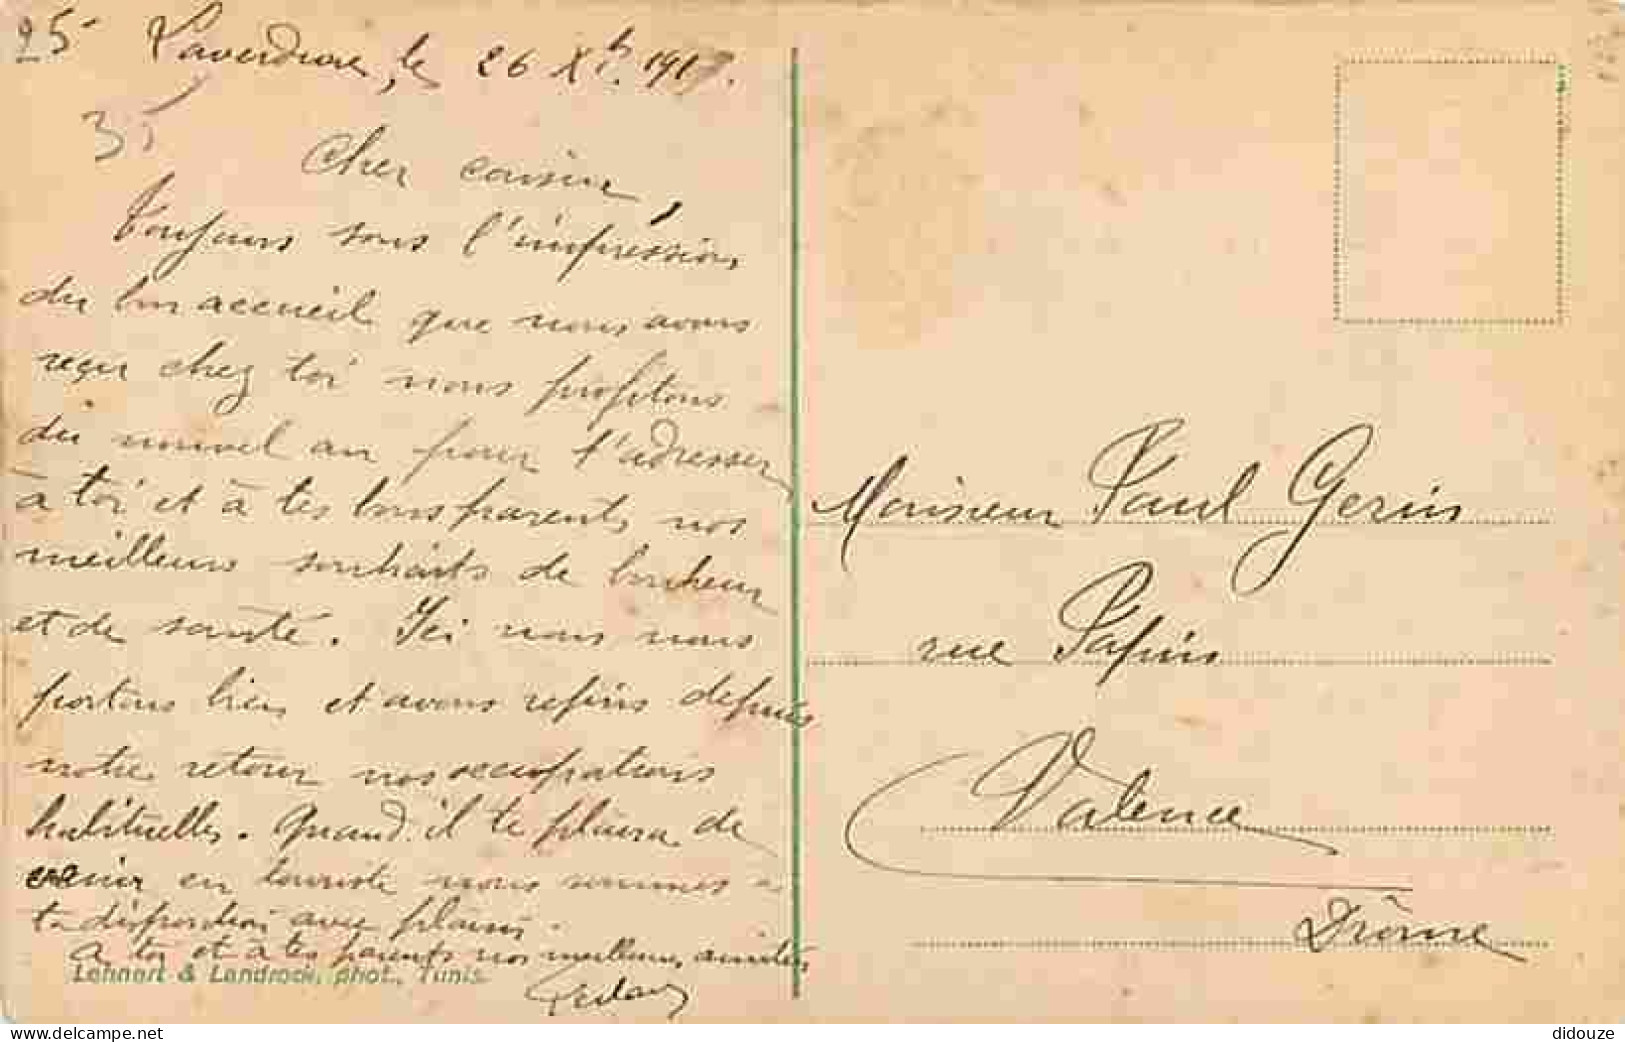 25
Laverdure, le 26 Xbre 191
35
Cher cousin,
Toujours sous l'impression
du bon accueil que nous avons
reçu chez toi nous profitons
du nouvel an pour t'adresser
à toi et à tes bons parents nos
meilleurs souhaits de bonheur
et de santé. Ici nous nous
portons bien et avons repris depuis
notre retour nos occupations
habituelles. Quand il te plaira de
venir en touriste nous sommes à
ta disposition avec plaisir.
A toi et à tes parents nos meilleures amitiés
Lehnert & Landrock, phot., Tunis
Monsieur Paul Gerin
rue Papin
Valence
Drôme
didouze